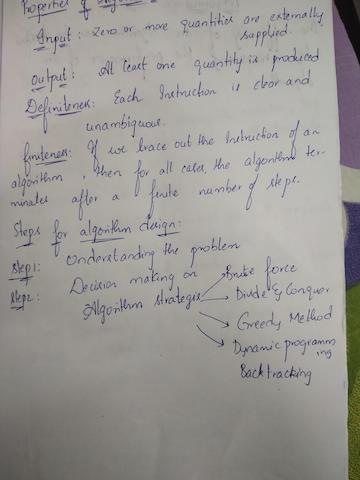 Properties of
Input: Zero or more quantities are externally
supplied.
Output: At least one quantity is produced
Definiteness: Each Instruction is clear and
unambiguous.
finiteness: If we trace out the Instruction of an
algorithm, then for all cases, the algorithm ter-
minates after a finite number of steps.
Steps for algorithm design:
Step1: Understanding the problem
Step2: Decision making on Brute force
Algorithm strategies Divide & Conquer
Greedy Method
Dynamic programm
ing
Backtracking